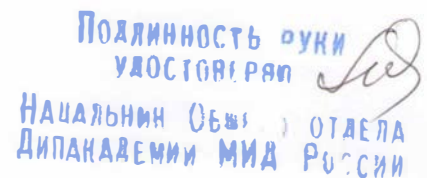 Подлинность руки
удостоверяю
Начальник Общего отдела
Дипакадемии МИД России